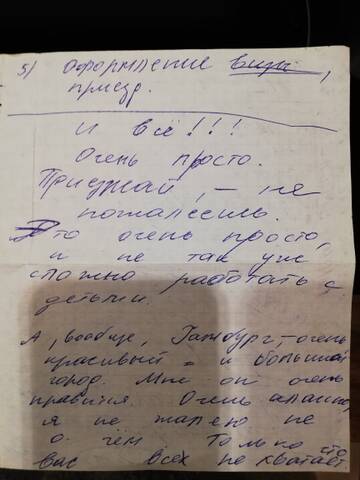 5) оформление визы,
приезд.
И всё!!!
Очень просто.
Приезжай, – не
пожалеешь.
Это очень просто,
и не так уж
сложно работать с
детьми.
А, вообще, Гамбург, – очень
красивый и большой
город. Мне он очень
нравится. Очень
я не жалею не
о чём. Только что
вас всех не хватает